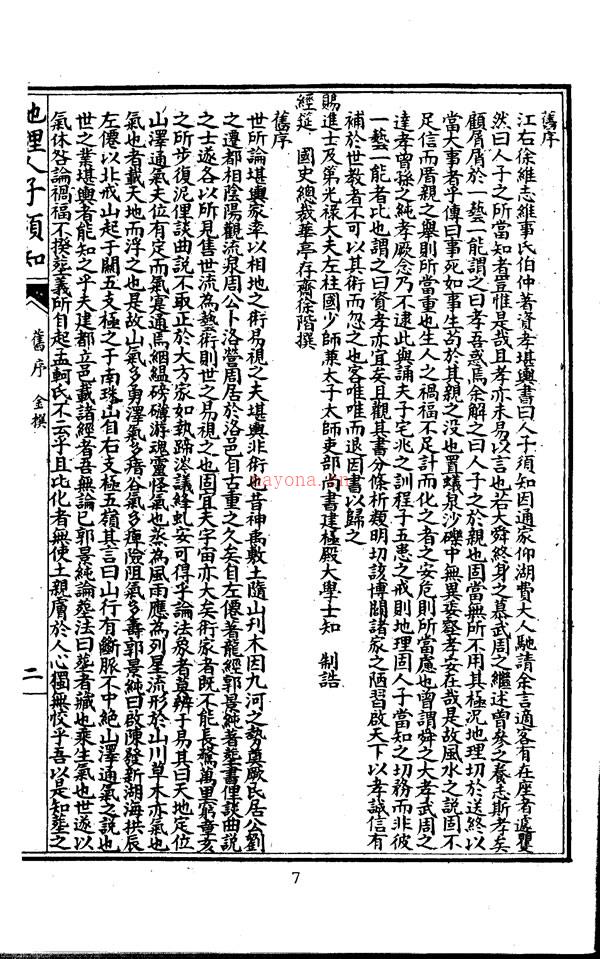 舊序
江右徐維志維事氏伯仲著資孝堪輿書曰人子須知因通家仰湖費大人馳請余言適客有在座者遽瞿
然曰人子之所當知者豈惟是哉且孝亦未易以言也若大舜終身之慕武周之繼述曾參之養志斯孝矣
顧屑屑於一藝一能謂之曰孝吾惑焉余解之曰人子之於親也固當無所不用其極況地理切於送終以
當大事者乎傳曰事死如事生苟於其親之没也置蟻泉沙礫中無異委壑孝安在哉是故風水之説固不
足信而厝親之舉則所當重也生人之禍福不足計而化之者之安危則所當慮也曾謂舜之大孝武周之
達孝曾操之純孝厥念乃不逮此與誦夫子宅兆之訓程子五患之戒則地理固人子當知之切務而非彼
一藝一能者比也謂之曰資孝亦宜矣且觀其書分條析類明切該博闢諸家之陋習啟天下以孝誠信有
補於世教者不可以其術而忽之也客唯唯而退因書以歸之
賜進士及第光禄大夫左柱國少師兼太子太師吏部尚書建極殿大學士知 制誥
經筵 國史總裁華亭存齋徐階撰
舊序
世所論堪輿家率以相地之術易視之夫堪輿非術也昔神禹敷土隨山刊木因九河之勢奠厥民居公劉
之遷都相陰陽觀流泉周公卜洛營周居於洛邑自古重之久矣自左僊著龍經郭景純著葬書俚談曲説
之士遂各以所見售世流為藝術則世之易視之也固宜夫宇宙亦大矣術家者既不能長驅萬里躬章亥
之所步復泥俚談曲説不取正於大方家如執蹄涔議絳虬安可得乎論法象者莫辨于易其曰天地定位
山澤通氣夫位有定而氣寔通焉絪縕磅礴游魂靈怪氣也蒸為風雨應為列星流形於山川草木亦氣也
氣也者載天地而浮之也是故山氣多勇澤氣多瘖谷氣多痺險阻氣多壽郭景純曰啟陳發新湖海拱辰
左僊以北戒山起于關五支極之于南珠山自右支極五嶺其言曰山行有斷脈不中絶山澤通氣之説也
世之業堪輿者能知之乎夫建都立邑載諸經者吾無論已郭景純論葬法曰葬者藏也乘生氣也世遂以
氣休咎論禍福不揆葬義所自起孟軻氏不云乎且比化者無使土親膚於人心獨無恔乎吾以是知葬之
地理人子須知
舊序 金撰
二
7
nayona.cn